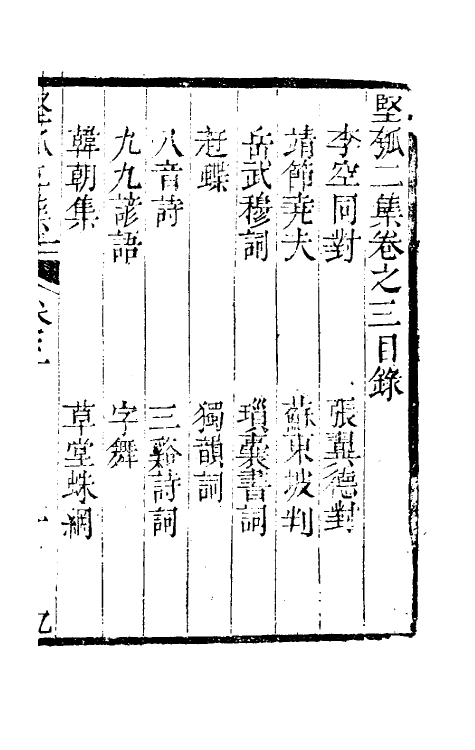 堅瓠二集卷之三目錄
李空同對　張翼德對
靖節堯夫　蘇東坡判
岳武穆詞　瑣囊書詞
赶蝶　獨韻詞
八音詩　三谿詩詞
九九諺語　字舞
韓朝集　草堂蛛網